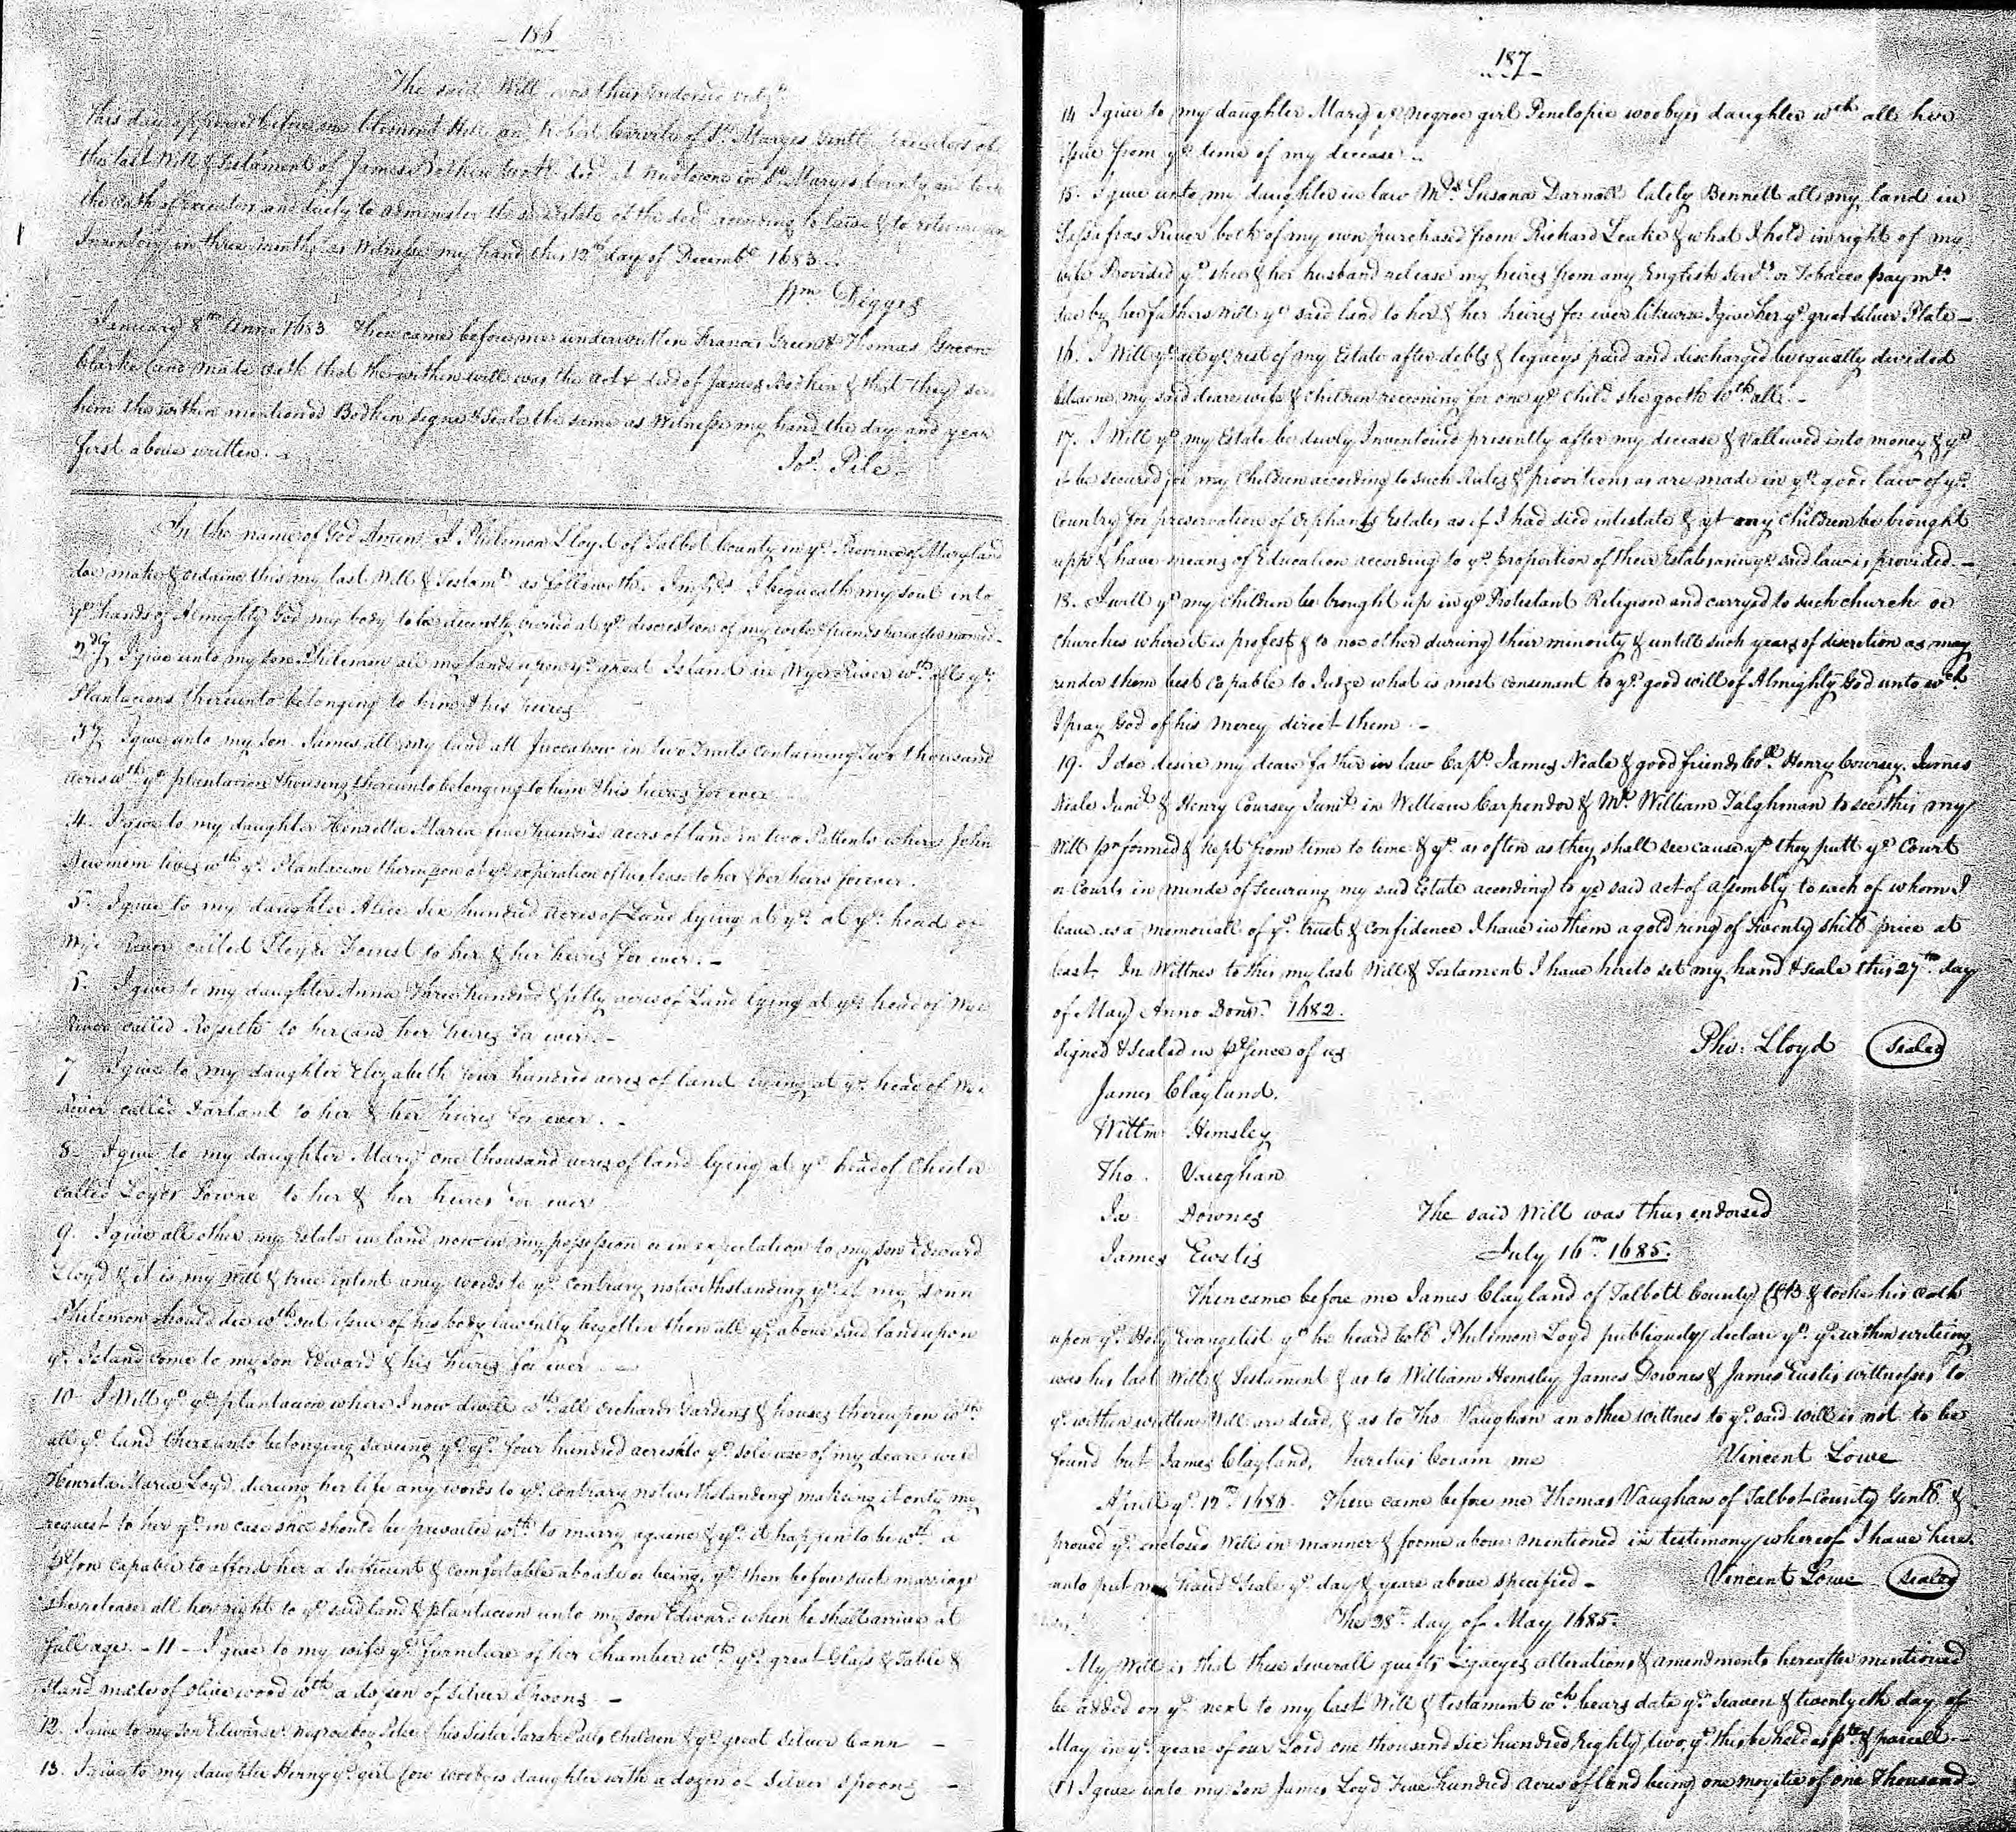 186
The said Will was thus endorsed
This day appeared before me Clement Hill and Robert Carvile of St. Maryes Gentl. Executors of
the last Will & Testament of James Bodkin Gentl. decd. at in St. Maryes County and took
the oath of Executors and duely to administer the Estate of the decd. according to Lawe & to returne an
Inventory in three months as Witnesse my hand this 12th day of Decembr. 1683
Wm. Digges
January 8th Anno 1683 Then came before me underwritten Francis Green & Thomas Green
Clarke and made oath that the within will was the act & deed of James Bodkin & that they see
him the within mentioned Bodkin signe & seale the same as Witnesse my hand the day and year
first above written.
Jos. Pile
In the name of God Amen I Philemon Lloyd of Talbot County in ye. Province of Maryland
doe make & ordaine this my last Will & Testamt. as followeth. Imprs. I bequeath my soul into
ye. hands of Almighty God my body to be decently buried at ye. discression of my wife & friends hereafter named
2dly I give unto my son Philemon all my lands upon ye. great Island in Wye River wth. all ye.
Plantacions thereunto belonging to him & his heires
3ly I give unto my son James all my land att in two Tracts containing two thousand
acres wth. ye. plantacion & housing thereunto belonging to him & his heires for ever
4. I give to my daughter Henretta Maria five hundred acers of land in two Pattents where John
lives wth. ye. Plantacion thereupon at ye. expiration of his lease to her & her heirs forever.
5. I give to my daughter Alice six hundred acres of Land lying at ye. at ye. head of
Wye River called Lloyds Forrest to her & her heires for ever. -
6. I give to my daughter Anna three hundred & fifty acres of Land lying at ye. head of Wye
River called to her and her heires for ever. -
7 I give to my daughter Elizabeth four hundred acres of land lying at ye. head of Wye
River called Darland to her & her heires for ever. -
8. I give to my daughter Mary one thousand acres of land lying at ye. head of Chester
called Loyds Towne to her & her heires for ever
9. I give all other my Estate in land now in my possession or in expectation to my son Edward
Lloyd & it is my will & true intent any words to ye. contrary notwithstanding yt. if my sonn
Philemon should die wthout issue of his body lawfully begotten then all ye. above said land upon
ye. Island come to my son Edward & his heires for ever
10. I Will yt. ye. plantacion where I now dwell wth. all orchards Gardens & houses thereupon wth.
all ye. land thereunto belonging saveing ye. four hundred acres to ye. sole use of my deare wife
Henreta Maria Loyd dureing her life any words to ye. contrary notwithstanding makeing it only my
request to her yt. in case shee should be prevailed wth. to marry againe & yt. it happen to be wth. a
pson capable to afford her a sufficient & comfortable aboade or being, yt. then before such marriage
she release all her right to ye. said land & plantacion unto my son Edward when he shall arrive at
full age. - 11 - I give to my wife ye. furniture of her Chamber wth. ye. great Glass & Table &
stand made of olive wood wth. a dossen of Silver Spoons. -
12. I give to my son Edward ye. negroe boy & his Sister Sarah Children & ye. great Silver Cann -
13. I give to my daughter Henny ye. girl daughter with a dozen of Silver Spoons -
187
14 I give to my daughter Mary ye. negroe girl Penelopie woobyes daughter wch. all her
issue from ye. time of my decease -
15. I give unto my daughter in law Mrs. Susana Darnall lately Bennett all my land in
Sassafras River both of my own purchased from Richard Leake & what I hold in right of my
wife Provided yt. shee & her husband release my heires from any English Servts. or Tobacco paymts.
due by her fathers Will ye. said land to her & her heires for ever likewise I give her ye. great Silver Plate -
16. I Will yt. all ye. rest of my Estate after debts & legacys paid and discharged be equally divided
betweene my said deare wife & children reccconing for one ye. Child she goeth wth. all. -
17. I Will yt. my Estate be duely Inventoried presently after my decease & vallued into money & yt.
it be secured for my Children according to such Rules & provitions as are made in ye. good law of ye.
Country for preservation of Orphants Estates as if I had died intestate & yt my Children be brought
upp & have means of Education according to ye. proportion of their Estates as in ye. said law is provided. -
18. I will yt. my Children be brought up in ye. Protestant Religion and carryed to such church or
Churches where it is profest & to noe other dureing their minority & untill such years of discretion as may
render them best Capable to Judge what is most consenant to ye. good will of Almighty God unto wch.
I pray God of his mercy direct them -
19. I doe desire my deare father in law Capt. James Neale & good friends Coll. Henry Coursey, James
Neale Junr. & Henry Coursey Junr. in William Carpender & Mr. William Talghman to see this my
Will pformed & kept from time to time & yt. as often as they shall see cause yt. they putt ye. Court
or Courts in minde of secureing my said Estate according to ye. said act of Assembly to each of whom I
leave as a memoriall of ye. trust & confidence I have in them a gold ring of twenty shills price at
least. In Wittnes to this my last Will & Testament I have hereto set my hand & seale this 27th day
of May Anno Doni. 1682.
signed & sealed in psence of us
Phi: Lloyd sealed
James Clayland.
Willm Hemsley
Tho. Vaughan
Ja Downes
The said Will was thus endorsed
James Ewstis
July 16th 1685.
Then came before me James Clayland of Talbott County & tooke his oath
upon ye. Holy Evangelist yt. he heard Coll Philemon Loyd publiquely declare yt. ye. within writeing
was his last Will & Testament & as to William Hemsley James Downes & James Eustis wittnesses to
ye. within written Will are dead, & as to Tho Vaughan another wittnes to ye. said will is not to be
found but James Clayland. Juratus Coram me
Vincent Lowe
Aprill ye. 12th 1686. Then came before me Thomas Vaughan of Talbot County Gentl &
proved ye. enclosed Will in manner & forme above mentioned in testimony whereof I have here
unto put my hand & seale ye. day & yeare above specified -
Vincent Lowe sealed
The 28th day of May 1685.
My Will is that these severall guifts Legacyes alterations & amendments hereafter mentioned
be added on ye. next to my last Will & testament wch. bears date ye. Seaven & twentyeth day of
May in ye. yeare of our Lord one thousand six hundred Eighty two, yt. this be held as pt. & parcell -
(1) I give unto my son James Loyd five hundred acres of land being one moyetie of one thousand